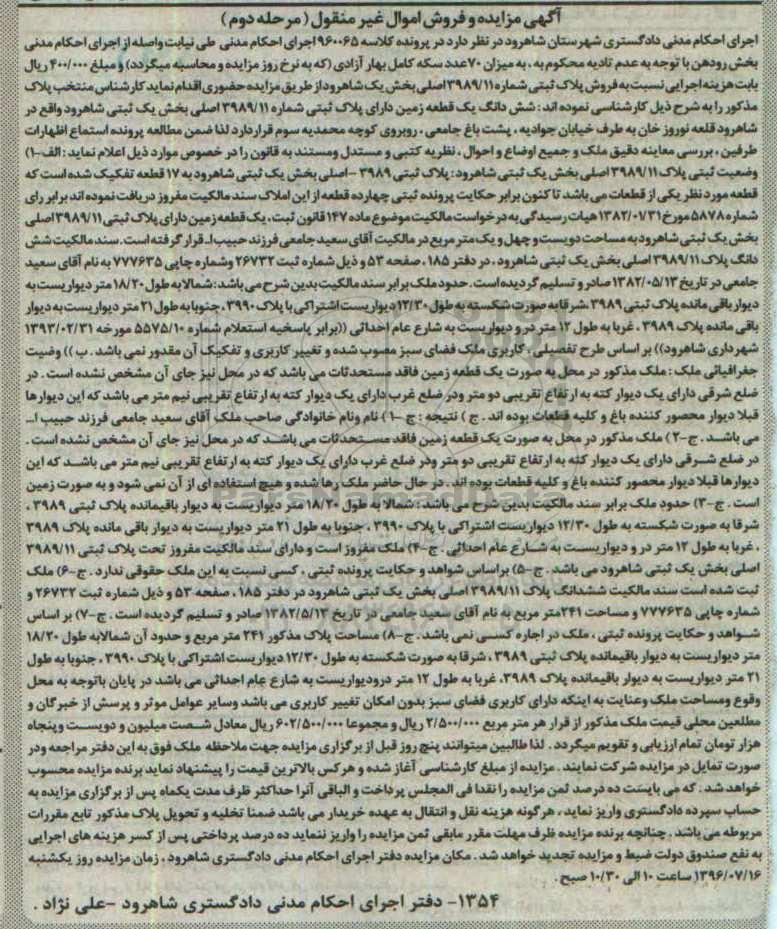 آگهی مزایده و فروش اموال غیر منقول ( مرحله دوم )
اجرای احکام مدنی دادگستری شهرستان شاهرود در نظر دارد در پرونده کلاسه ۹۶۰۰۶۵ اجرای احکام مدنی طی نیابت واصله از اجرای احکام مدنی
بخش رودهن با توجه به عدم تادیه محکوم به ، به میزان ۷۰ عدد سکه کامل بهار آزادی (که به نرخ روز مزایده و محاسبه میگردد) و مبلغ ۴۰۰/۰۰۰ ریال
بابت هزینه اجرایی نسبت به فروش پلاک ثبتی شماره ۳۹۸۹/۱۱ اصلی بخش یک شاهرود از طریق مزایده حضوری اقدام نماید کارشناس منتخب پلاک
مذکور را به شرح ذیل کارشناسی نموده اند : شش دانگ یک قطعه زمین دارای پلاک ثبتی شماره ۳۹۸۹/۱۱ اصلی بخش یک ثبتی شاهرود واقع در
شاهرود قلعه نوروز خان به طرف خیابان جوادیه ، پشت باغ جامعی ، روبروی کوچه محمدیه سوم قرار دارد لذا ضمن مطالعه پرونده استماع اظهارات
طرفین ، بررسی معاینه دقیق ملک و جمیع اوضاع و احوال ، نظریه کتبی و مستدل و مستند به قانون را در خصوص موارد ذیل اعلام نماید : الف-۱)
وضعیت ثبتی پلاک ۳۹۸۹/۱۱ اصلی بخش یک ثبتی شاهرود : پلاک ثبتی ۳۹۸۹ - اصلی بخش یک ثبتی شاهرود به ۱۷ قطعه تفکیک شده است که
قطعه مورد نظر یکی از قطعات می باشد تا کنون برابر حکایت پرونده ثبتی چهارده قطعه از این املاک سند مالکیت مفروز دریافت نموده اند برابر رای
شماره ۵۸۷۸ مورخ ۱۳۸۲/۰۱/۳۱ هیات رسیدگی به درخواست مالکیت موضوع ماده ۱۴۷ قانون ثبت ، یک قطعه زمین دارای پلاک ثبتی ۳۹۸۹/۱۱ اصلی
بخش یک ثبتی شاهرود به مساحت دویست و چهل و یک متر مربع در مالکیت آقای سعید جامعی فرزند حبیب ا.. قرار گرفته است . سند مالکیت شش
دانگ پلاک ۳۹۸۹/۱۱ اصلی بخش یک ثبتی شاهرود ، در دفتر ۱۸۵ ، صفحه ۵۳ و ذیل شماره ثبت ۲۶۷۳۲ و شماره چاپی ۷۷۷۶۳۵ به نام آقای سعید
جامعی در تاریخ ۱۳۸۲/۰۵/۱۳ صادر و تسلیم گردیده است . حدود ملک برابر سند مالکیت بدین شرح می باشد : شمالا به طول ۱۸/۲۰ متر دیواریست به
دیوار باقی مانده پلاک ثبتی ۳۹۸۹ ، شرقا به صورت شکسته به طول ۱۲/۳۰ دیواریست اشتراکی با پلاک ۳۹۹۰ ، جنوبا به طول ۲۱ متر دیواریست به دیوار
باقی مانده پلاک ۳۹۸۹ ، غربا به طول ۱۲ متر در و دیواریست به شارع عام احداثی ((برابر پاسخیه استعلام شماره ۵۵۷۵/۱۰ مورخه ۱۳۹۳/۰۲/۳۱
شهرداری شاهرود)) بر اساس طرح تفصیلی ، کاربری ملک فضای سبز مصوب شده و تغییر کاربری و تفکیک آن مقدور نمی باشد . ب )) وضیت
جغرافیائی ملک : ملک مذکور در محل به صورت یک قطعه زمین فاقد مستحدثات می باشد که در محل نیز جای آن مشخص نشده است . در
ضلع شرقی دارای یک دیوار کته به ارتفاع تقریبی دو متر و در ضلع غرب دارای یک دیوار کته به ارتفاع تقریبی نیم متر می باشد که این دیوارها
قبلا دیوار محصور کننده باغ و کلیه قطعات بوده اند . ج ) نتیجه : ج -۱) نام و نام خانوادگی صاحب ملک آقای سعید جامعی فرزند حبیب ا..
می باشد . ج-۲) ملک مذکور در محل به صورت یک قطعه زمین فاقد مستحدثات می باشد که در محل نیز جای آن مشخص نشده است .
در ضلع شرقی دارای یک دیوار کته به ارتفاع تقریبی دو متر و در ضلع غرب دارای یک دیوار کته به ارتفاع تقریبی نیم متر می باشد که این
دیوارها قبلا دیوار محصور کننده باغ و کلیه قطعات بوده اند . در حال حاضر ملک رها شده و هیچ استفاده ای از آن نمی شود و به صورت زمین
است . ج-۳) حدود ملک برابر سند مالکیت بدین شرح می باشد : شمالا به طول ۱۸/۲۰ متر دیواریست به دیوار باقیمانده پلاک ثبتی ۳۹۸۹ ،
شرقا به صورت شکسته به طول ۱۲/۳۰ دیواریست اشتراکی با پلاک ۳۹۹۰ ، جنوبا به طول ۲۱ متر دیواریست به دیوار باقی مانده پلاک ۳۹۸۹
، غربا به طول ۱۲ متر در و دیواریست به شارع عام احداثی . ج-۴) ملک مفروز است و دارای سند مالکیت مفروز تحت پلاک ثبتی ۳۹۸۹/۱۱
اصلی بخش یک ثبتی شاهرود می باشد . ج-۵) براساس شواهد و حکایت پرونده ثبتی ، کسی نسبت به این ملک حقوقی ندارد . ج-۶) ملک
ثبت شده است سند مالکیت ششدانگ پلاک ۳۹۸۹/۱۱ اصلی بخش یک ثبتی شاهرود در دفتر ۱۸۵ ، صفحه ۵۳ و ذیل شماره ثبت ۲۶۷۳۲ و
شماره چاپی ۷۷۷۶۳۵ و مساحت ۲۴۱متر مربع به نام آقای سعید جامعی در تاریخ ۱۳۸۲/۵/۱۳ صادر و تسلیم گردیده است . ج-۷) بر اساس
شواهد و حکایت پرونده ثبتی ، ملک در اجاره کسی نمی باشد . ج-۸) مساحت پلاک مذکور ۲۴۱ متر مربع و حدود آن شمالا به طول ۱۸/۲۰
متر دیواریست به دیوار باقیمانده پلاک ثبتی ۳۹۸۹ ، شرقا به صورت شکسته به طول ۱۲/۳۰ دیواریست اشتراکی با پلاک ۳۹۹۰ ، جنوبا به طول
۲۱ متر دیواریست به دیوار باقیمانده پلاک ۳۹۸۹، غربا به طول ۱۲ متر درو دیواریست به شارع عام احداثی می باشد در پایان باتوجه به محل
وقوع و مساحت ملک و عنایت به اینکه دارای کاربری فضای سبز بدون امکان تغییر کاربری می باشد و سایر عوامل موثر و پرسش از خبرگان و
مطلعین محلی قیمت ملک مذکور از قرار هر متر مربع ۲/۵۰۰/۰۰۰ ریال و مجموعا ۶۰۲/۵۰۰/۰۰۰ ریال معادل شصت میلیون و دویست و پنجاه
هزار تومان تمام ارزیابی و تقویم میگردد . لذا طالبین میتوانند پنج روز قبل از برگزاری مزایده جهت ملاحظه ملک فوق به این دفتر مراجعه و در
صورت تمایل در مزایده شرکت نمایند . مزایده از مبلغ کارشناسی آغاز شده و هرکس بالاترین قیمت را پیشنهاد نماید برنده مزایده محسوب
خواهد شد . که می بایست ده درصد ثمن مزایده را نقدا فی المجلس پرداخت و الباقی آنرا حداکثر ظرف مدت یکماه پس از برگزاری مزایده به
حساب سپرده دادگستری واریز نماید ، هرگونه هزینه نقل و انتقال به عهده خریدار می باشد ضمنا تخلیه و تحویل پلاک مذکور تابع مقررات
مربوطه می باشد . چنانچه برنده مزایده ظرف مهلت مقرر مابقی ثمن مزایده را واریز ننماید ده درصد پرداختی پس از کسر هزینه های اجرایی
به نفع صندوق دولت ضبط و مزایده تجدید خواهد شد . مکان مزایده دفتر اجرای احکام مدنی دادگستری شاهرود ، زمان مزایده روز یکشنبه
۱۳۹۶/۰۷/۱۶ ساعت ۱۰ الی ۱۰/۳۰ صبح .
۱۳۵۴- دفتر اجرای احکام مدنی دادگستری شاهرود - علی نژاد .